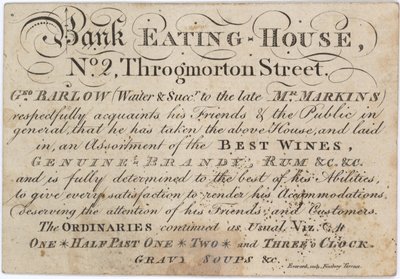 Bank EATING-HOUSE,
No. 2, Throgmorton Street.
Geo. BARLOW (Waiter & Succr. to the late Mr. MARKINS)
respectfully acquaints his Friends & the Public in
general, that he has taken the above House, and laid
in, an Assortment of the BEST WINES,
GENUINE BRANDY, RUM &c. &c.
and is fully determined to the best of his Abilities,
to give every satisfaction to render his Acommodations,
deserving the attention of his Friends and Customers.
The ORDINARIES continued as Usual Viz. At
ONE * HALF PAST ONE * TWO * and THREE o'CLOCK.
GRAVY SOUPS &c.